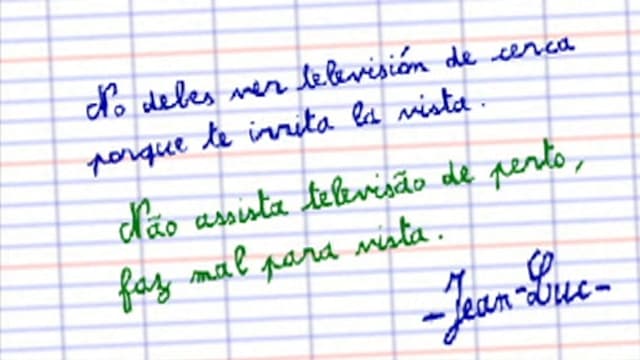 No debes ver televisión de cerca
porque te irrita la vista.
Não assista televisão de perto,
faz mal para vista.
-Jean-Luc-